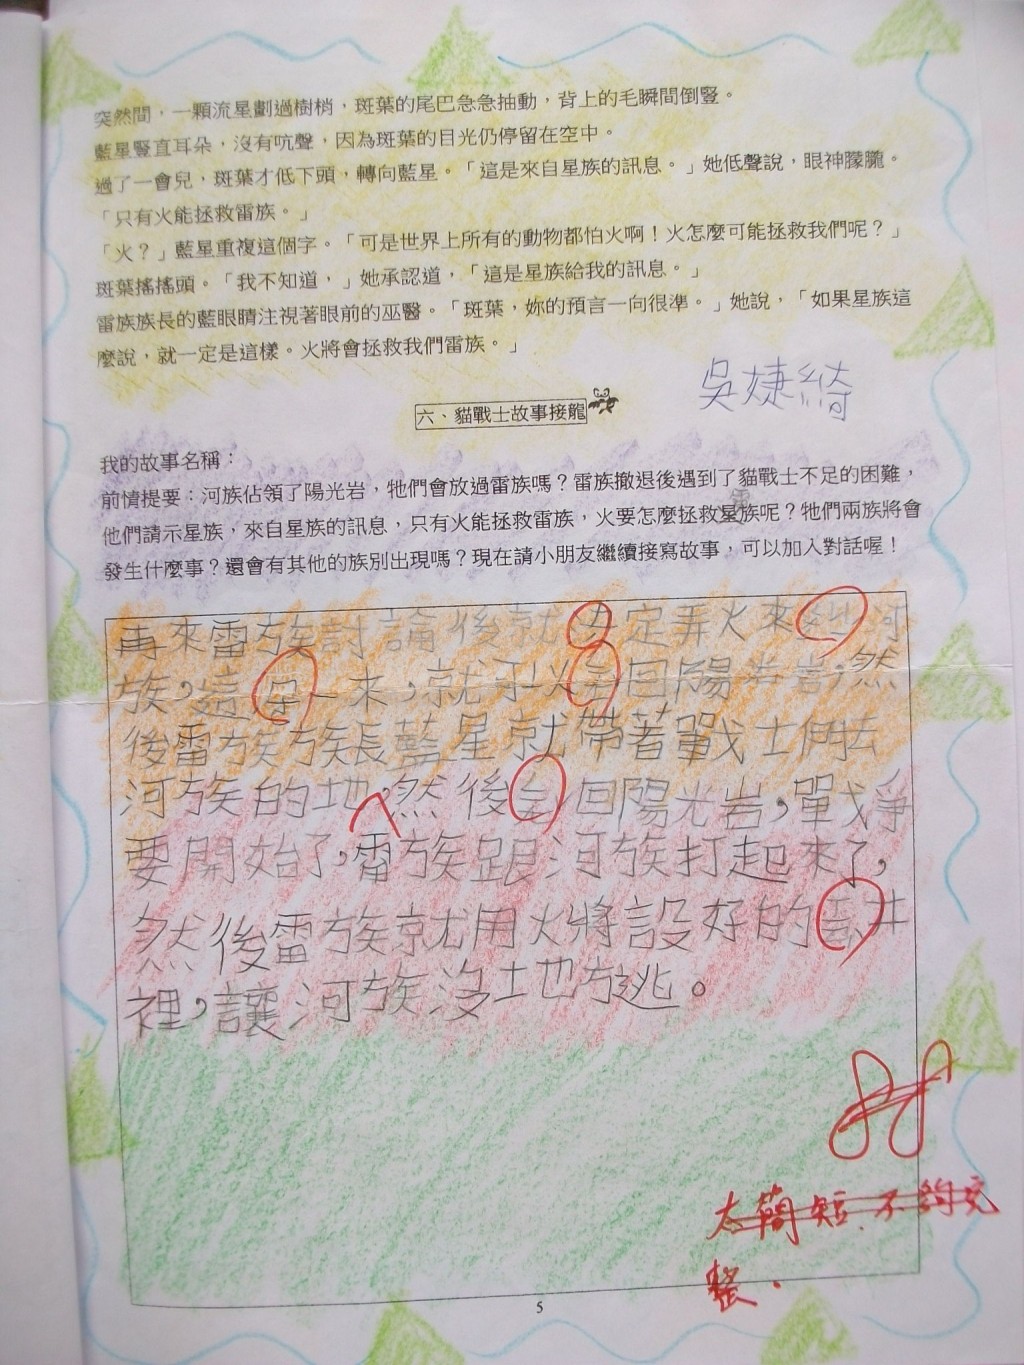 突然間，一顆流星劃過樹梢，斑葉的尾巴急急抽動，背上的毛瞬間倒豎。
藍星豎直耳朵，沒有吭聲，因為斑葉的目光仍停留在空中。
過了一會兒，斑葉才低下頭，轉向藍星。「這是來自星族的訊息。」她低聲說，眼神朦朧。
「只有火能拯救雷族。」
「火？」藍星重複這個字。「可是世界上所有的動物都怕火啊！火怎麼可能拯救我們呢？」
斑葉搖搖頭。「我不知道，」她承認道，「這是星族給我的訊息。」
雷族族長的藍眼睛注視著眼前的巫醫。「斑葉，妳的預言一向很準。」她說，「如果星族這
麼說，就一定是這樣。火將會拯救我們雷族。」
吳婕綺
六、貓戰士故事接龍
我的故事名稱：
前情提要：河族佔領了陽光岩，牠們會放過雷族嗎？雷族撤退後遇到了貓戰士不足的困難，
他們請示星族，來自星族的訊息，只有火能拯救雷族，火要怎麼拯救星族呢？牠們兩族將會
雷
發生什麼事？還會有其他的族別出現嗎？現在請小朋友繼續接寫故事，可以加入對話喔！
再來雷族討論後就決定弄火來 河
族，這 一來，就可以 回陽光岩，然
後雷族族長藍星就帶著戰士們去
河族的地，然後 回陽光岩，戰爭
要開始了，雷族跟河族打起來了，
然後雷族就用火將設好的 井
裡，讓河族沒土地方逃。
太簡短、不夠完
整。
5